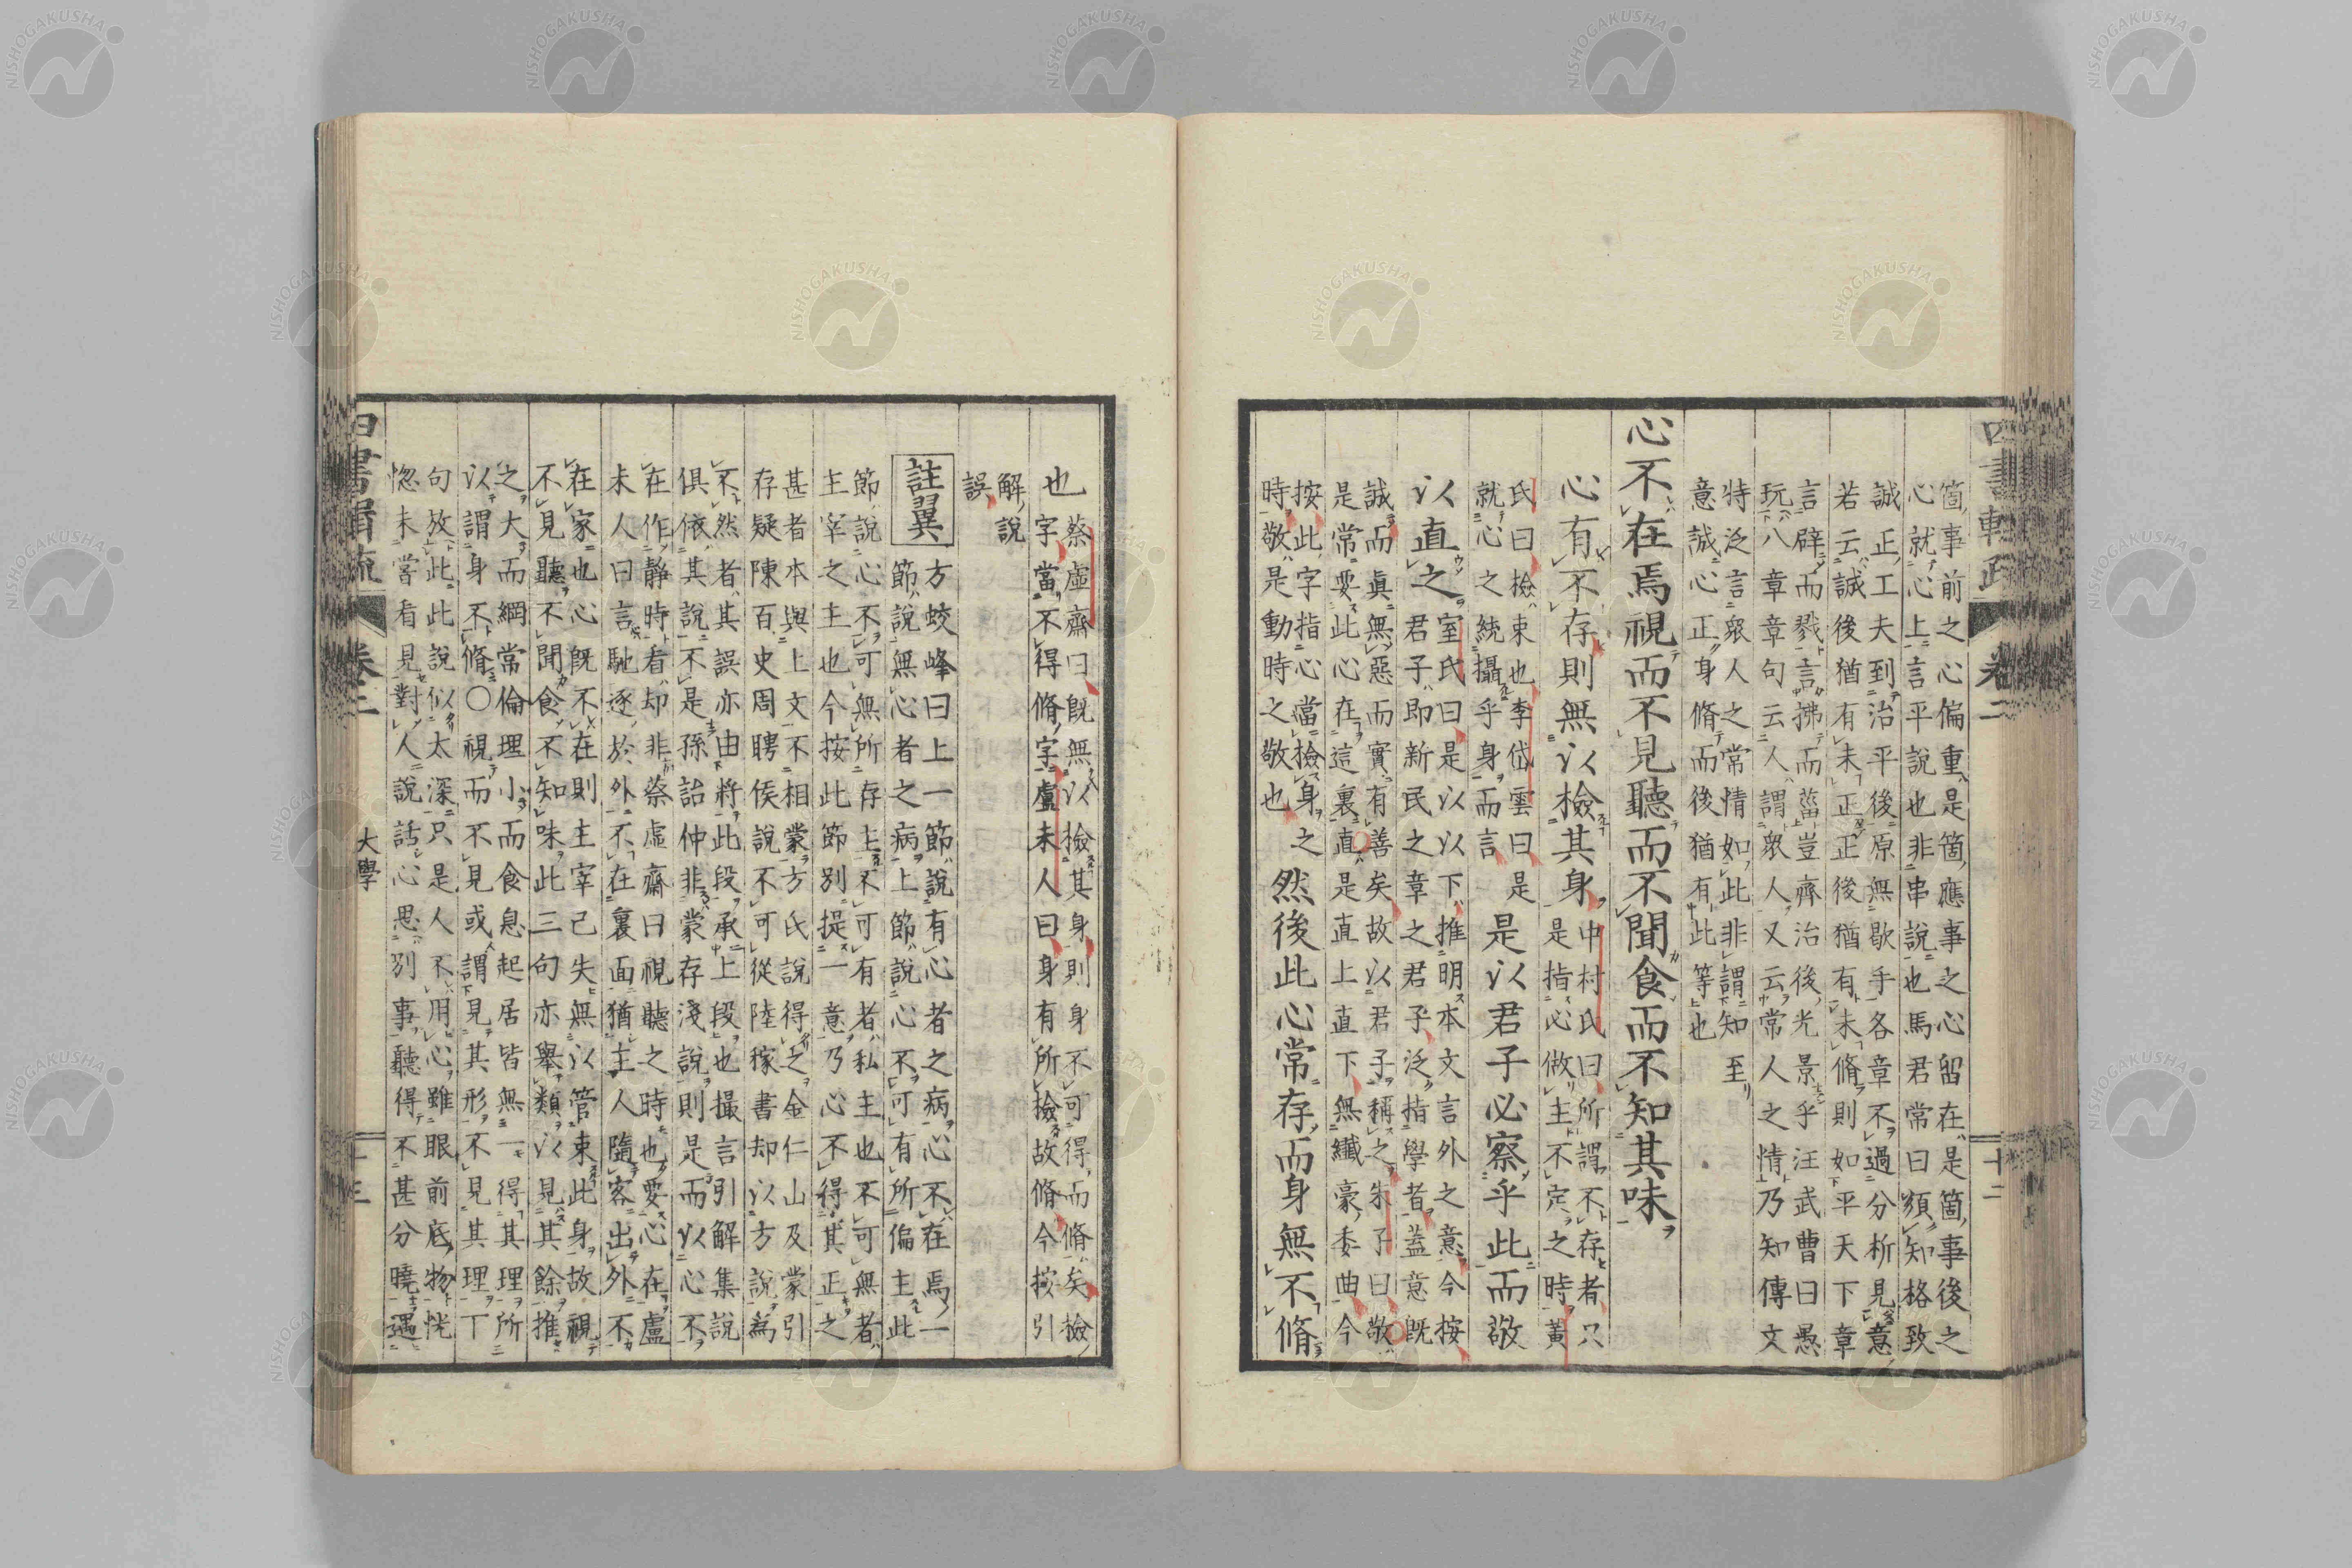 箇事前之心偏重是箇應事之心留在是箇事後之
心就心上言平說也非串說也馬君常曰須知格致
誠正工夫到治平後原無歇手各章不過分析見意
若云誠後猶有未正正後猶有未脩則如平天下章
言辟而戮言拂而菑豈齊治後光景乎汪武曹曰愚
玩八章章句云人謂衆人又云常人之情乃知傳文
特泛言衆人之常情如此非謂知至
意誠心正身脩而後猶有此等也
心不在焉視而不見聽而不聞食而不知其味
心有不存則無以檢其身
中村氏曰所謂不存者只
是指心做主不定之時黃
氏曰檢束也李岱雲曰是
就心之統攝乎身而言
是以君子必察乎此而敬
以直之
室氏曰是以以下推明本文言外之意今按
君子即新民之章之君子泛指學者蓋意旣
誠而眞無惡而實有善矣故以君子稱之朱子曰敬
是常要此心在這裏直是直上直下無纖豪委曲今
按此字指心當檢身之
時敬是動時之敬也
然後此心常存而身無不脩
也
蔡虛齋曰旣無以檢其身則身不可得而脩矣檢
字當不得脩字盧未人曰身有所檢故脩今按引
解說
誤
註翼
方蛟峰曰上一節說有心者之病心不在焉一
節說無心者之病上節說心不可有所偏主此
節說心不可無所存主不可有者私主也不可無者
主宰之主也今按此節別提一意乃心不得其正之
甚者本與上文不相蒙方氏說得之金仁山及蒙引
存疑陳百史周聘侯說不可從陸稼書却以方說為
不然者其誤亦由將此段承上段也撮言引解集說
俱依其說不是孫詒仲非蒙存淺說則是而以心不
在作靜時看却非蔡虛齋曰視聽之時也要心在盧
未人曰言馳逐於外不在裏面猶主人隨客出外不
在家也心旣不在則主宰已失無以管束此身故視
不見聽不聞食不知味此三句亦舉類以見其餘推
之大而綱常倫理小而食息起居皆無一得其理所
以謂身不脩〇視而不見或謂見其形不見其理丁
句放此此說似太深只是人不用心雖眼前底物恍
惚未嘗看見對人說話心思別事聽得不甚分曉遇
大學